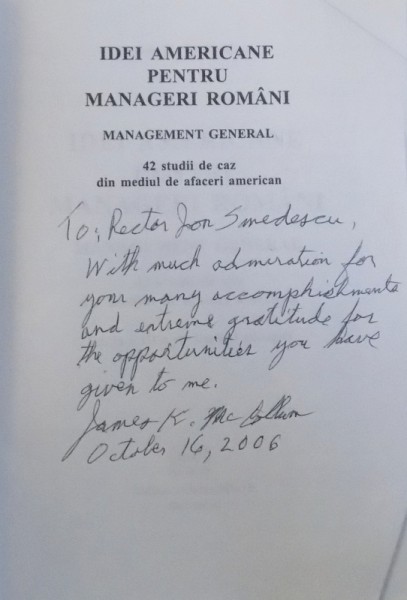 IDEI AMERICANE
PENTRU
MANAGERI ROMÂNI
MANAGEMENT GENERAL
42 studii de caz
din mediul de afaceri american
To: Rector Ion Smedescu,
With much admiration for
your many accomplishments
and extreme gratitude for
the opportunities you have
given to me.
James K. McCollum
October 16, 2006